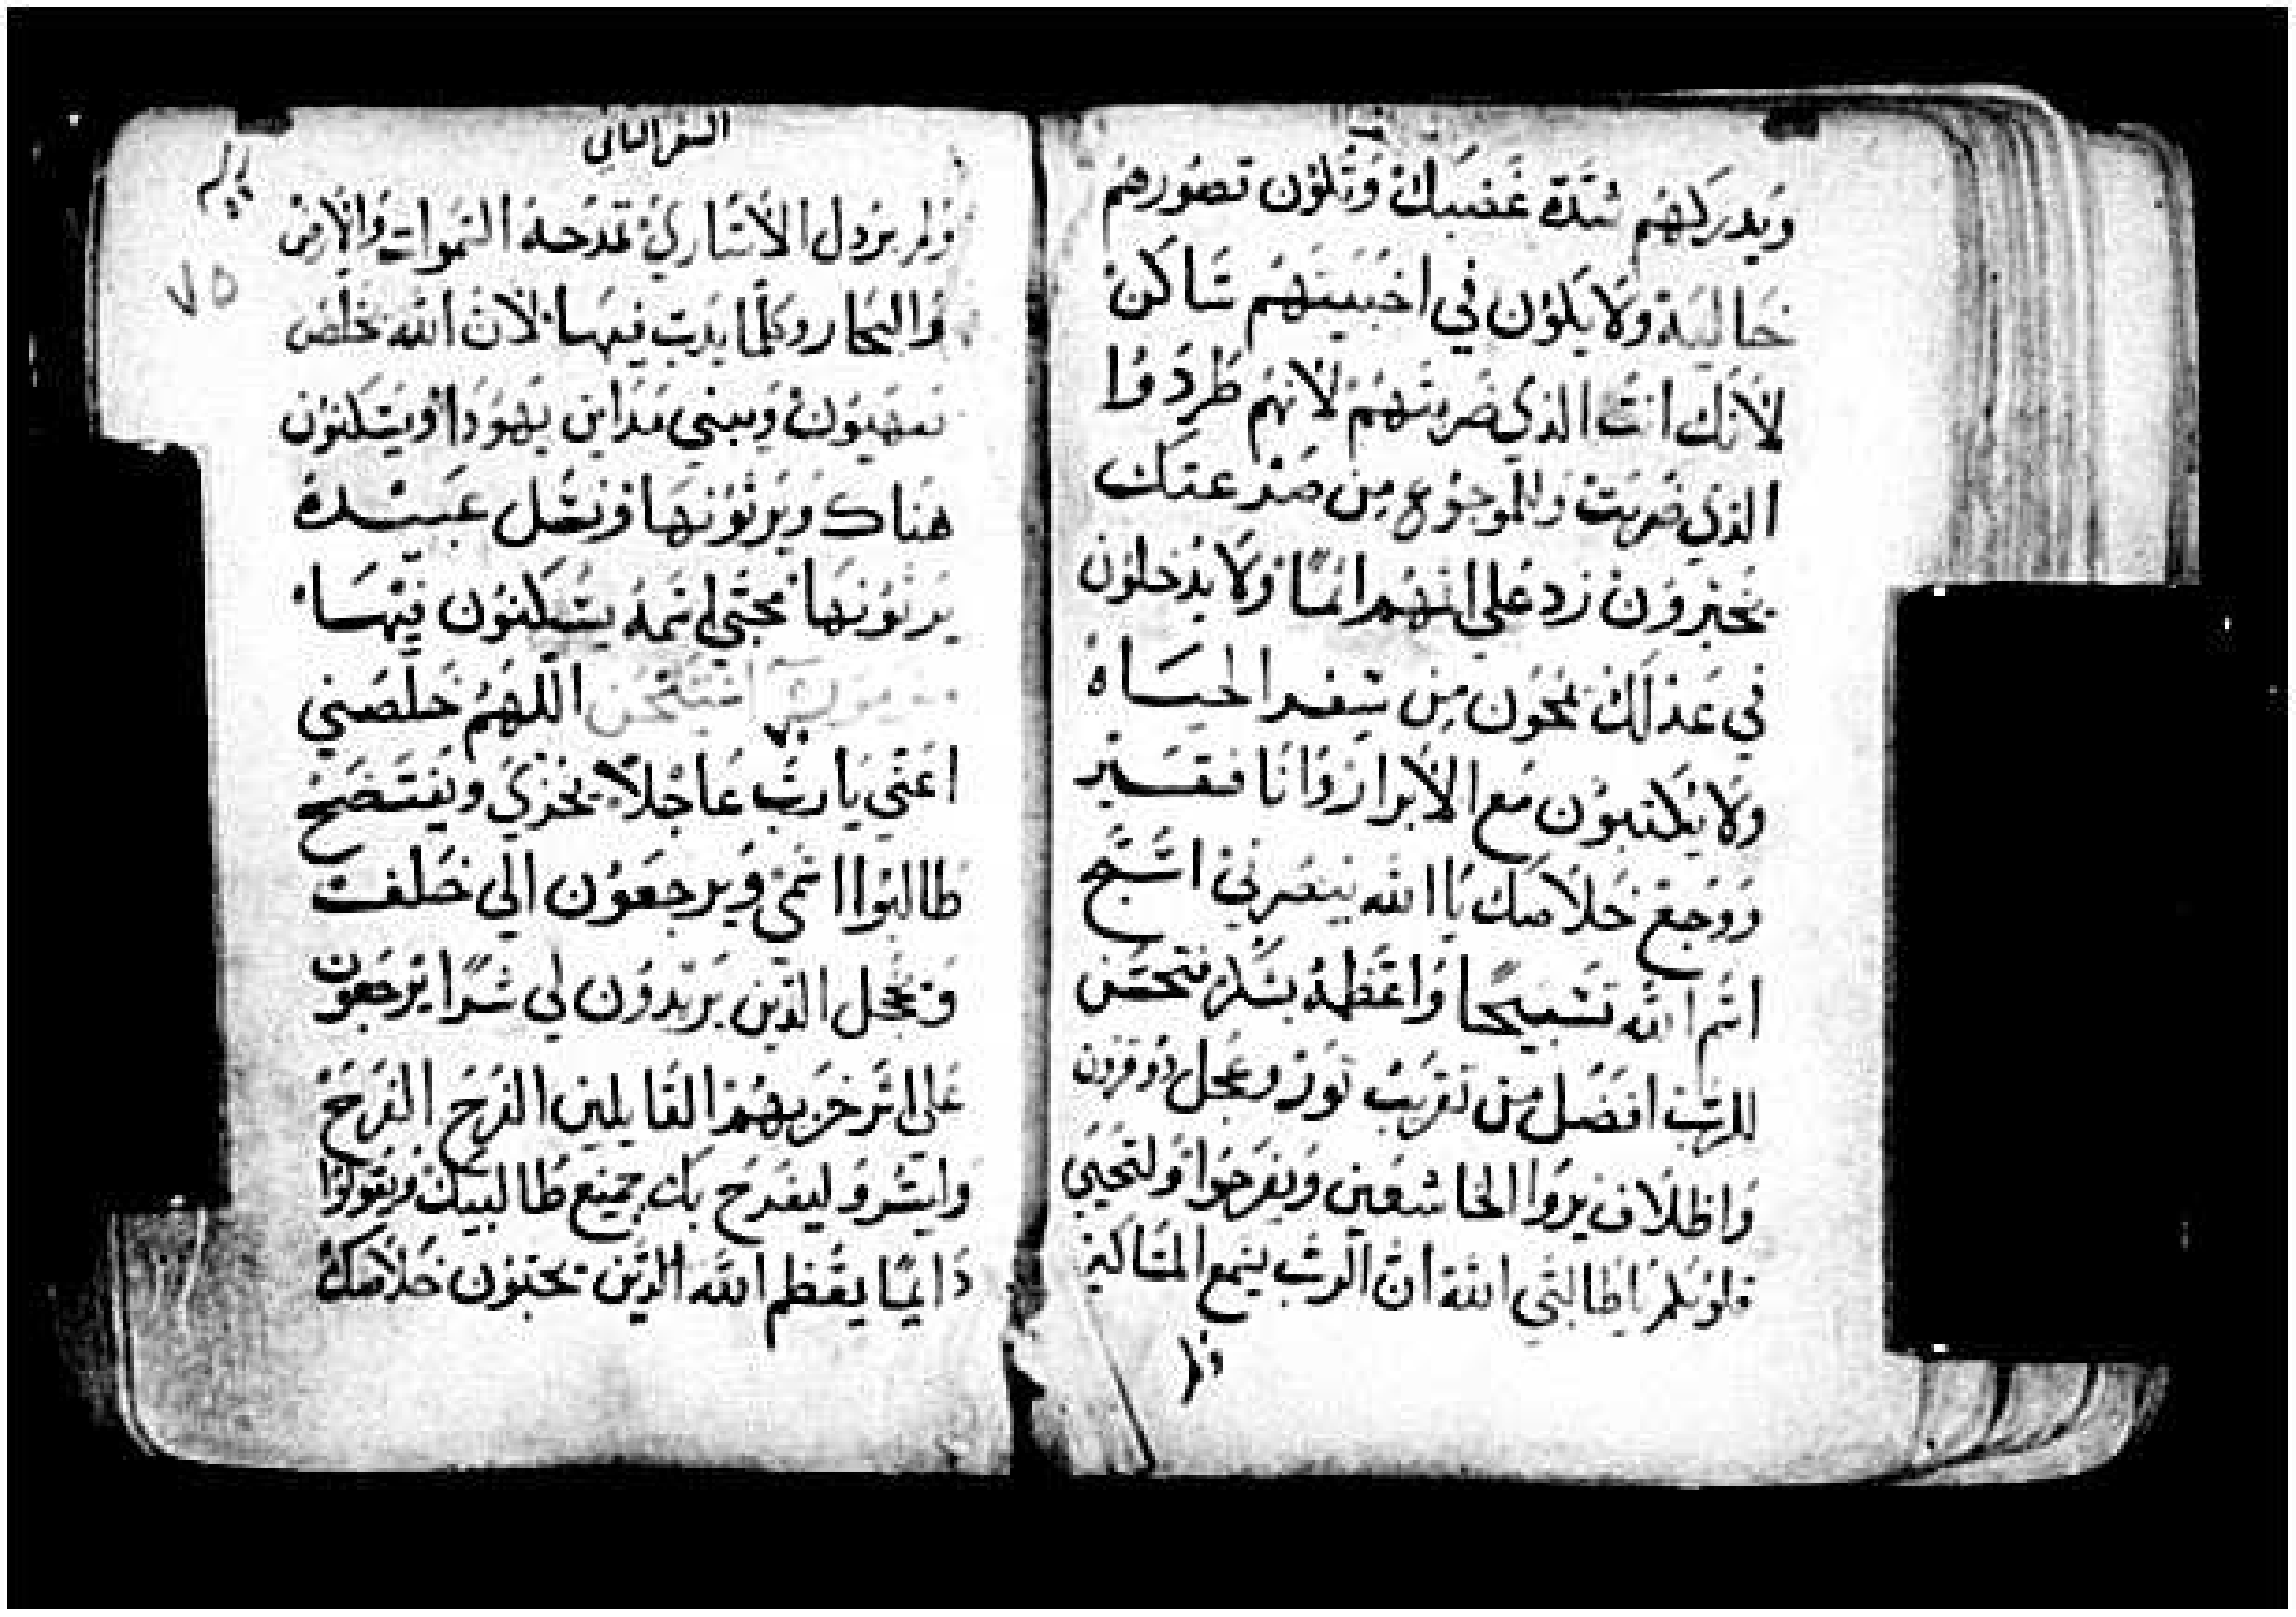 ويدركهم شدة غضبك وتكون تصورهم
خالية ولا يكون في اخبيتهم ساكن
لانك انت الذي ضربتهم لانهم طردوا
الذي ضربت والموجوع من صرعتك
يخبرون زد على اثمهم اثمًا ولا يدخلون
في عدلك يمحون من سفر الحياة
ولا يكتبون مع الابرار وانا فقير
ووجع خلاصك يا الله ينصرني اسبح
اسم الله تسبيحًا واعظمه بشكر فتحسن
للرب افضل من تقريب ثور وعجل ذو قرون
واظلاف يروا الخاشعين ويفرحوا ولتحيي
قلوبكم اطالبي الله ان الرب يسمع المساكين
ولم
السفر الثاني
٧٥
ولم يردل الاساري تمدحه السموات والارض
والبحار وكلما يدب فيها لان الله يخلص
صهيون ويبني مداين يهودا ويسكنون
هناك ويرثونها ونسل عبيده
يرثونها محبي اسمه يسكنون فيها
اللهم خلصني
اعني يا رب عاجلاً يخزي ويفتضح
طالبوا نفسي ويرجعون الى خلف
وتخجل الذين يريدون لي شرًا يرجعون
على اثر خزيهم القايلين الفرح الفرح
وايسر وليفرح بك جميع طالبيك ويقولوا
دايمًا يعظم الله الذين يحبون خلاصك